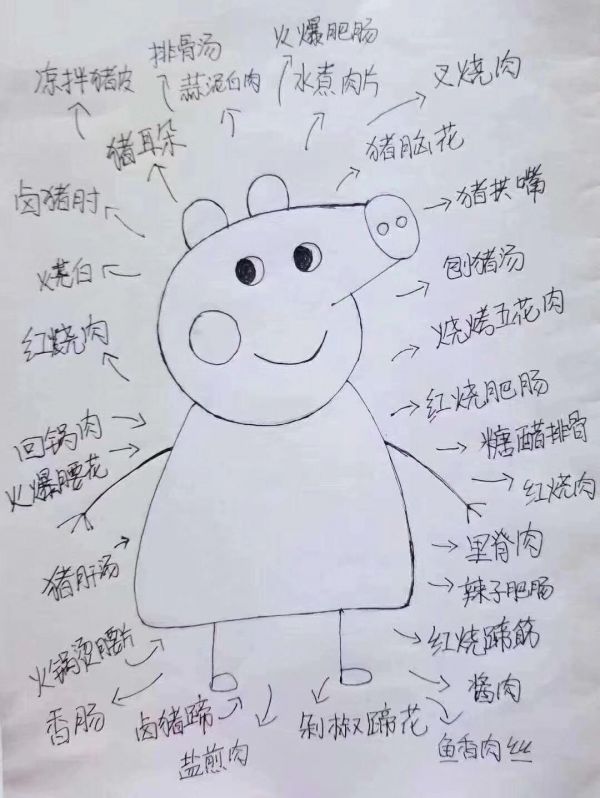 排骨汤
火爆肥肠
凉拌猪皮
蒜泥白肉
水煮肉片
叉烧肉
猪耳朵
猪脑花
卤猪肘
猪拱嘴
烧白
刨猪汤
红烧肉
烧烤五花肉
红烧肥肠
回锅肉
糖醋排骨
火爆腰花
红烧肉
里脊肉
猪肝汤
辣子肥肠
红烧蹄筋
火锅烫腰片
酱肉
香肠
卤猪蹄
剁椒蹄花
盐煎肉
鱼香肉丝